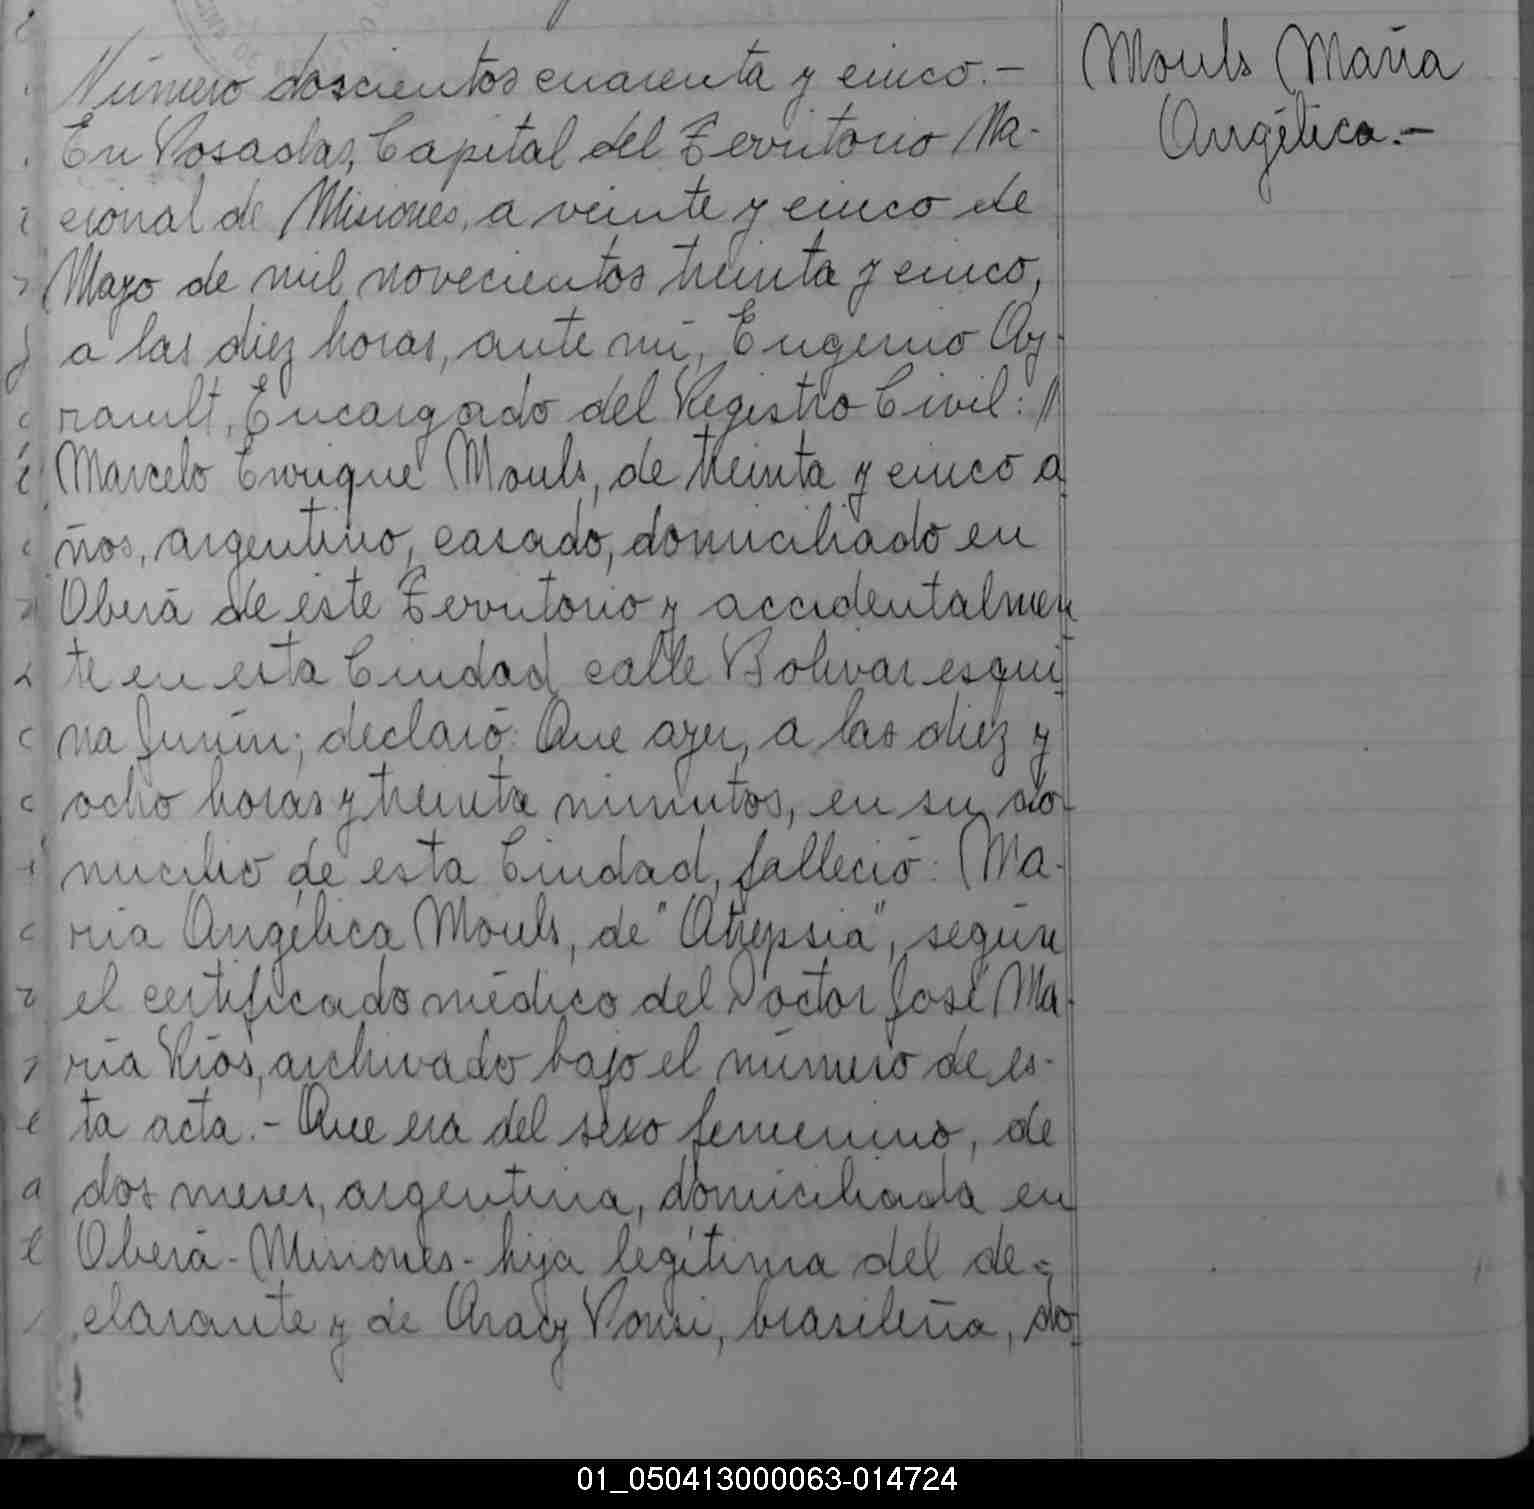 Número doscientos cuarenta y cinco.-
En Posadas, Capital del Territorio Na-
cional de Misiones, a veinte y cinco de
Mayo de mil novecientos treinta y cinco,
a las diez horas, ante mí, Eugenio Ay-
rault, Encargado del Registro Civil: //
Marcelo Enrique Mouls, de treinta y cinco a
ños, argentino, casado, domiciliado en
Oberá de este Territorio y accidentalmen
te en esta Ciudad calle Bolivar esqui
na Junín; declaró: Que ayer, a las diez y
ocho horas y treinta minutos, en su do-
micilio de esta Ciudad, falleció: Ma-
ría Angélica Mouls, de "Atrepsia", según
el certificado médico del Doctor José Ma-
ría Ríos, archivado bajo el número de es-
ta acta.- Que era del sexo femenino, de
dos meses, argentina, domiciliada en
Oberá - Misiones - hija legítima del de-
clarante y de Aracy, brasileña, do
Mouls María
Angélica.-
01_050413000063-014724